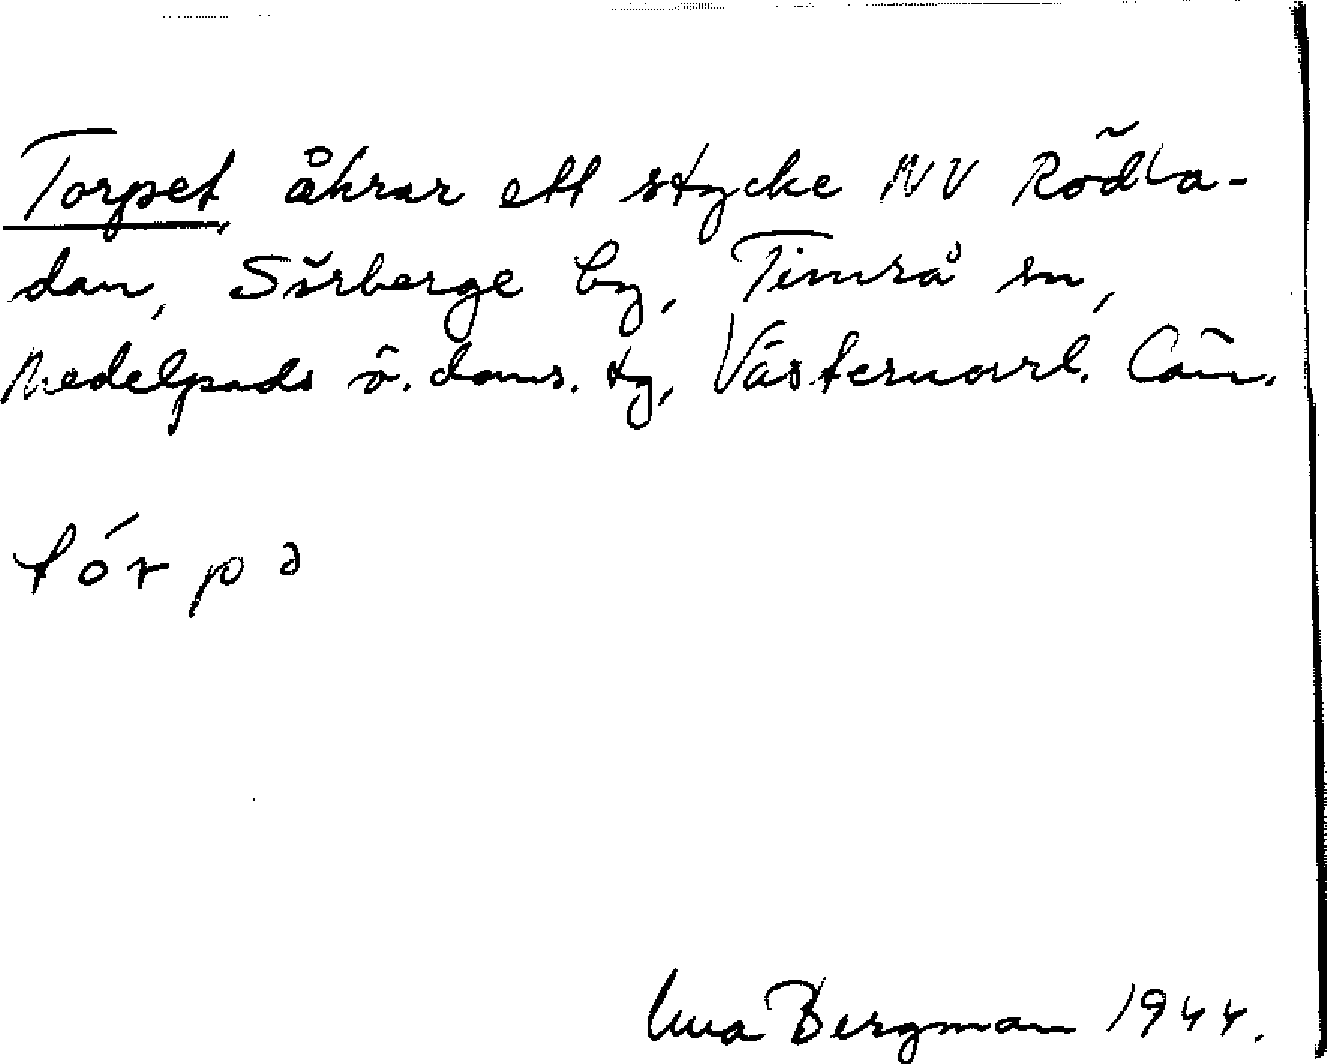 Torpet, åkrar ett stycke NV Rödla-
dan, Sörberge by, Timrå sn,
Medelpads ö. doms. tg, Västernorrl. län.
tórpə
Bergman 1944.